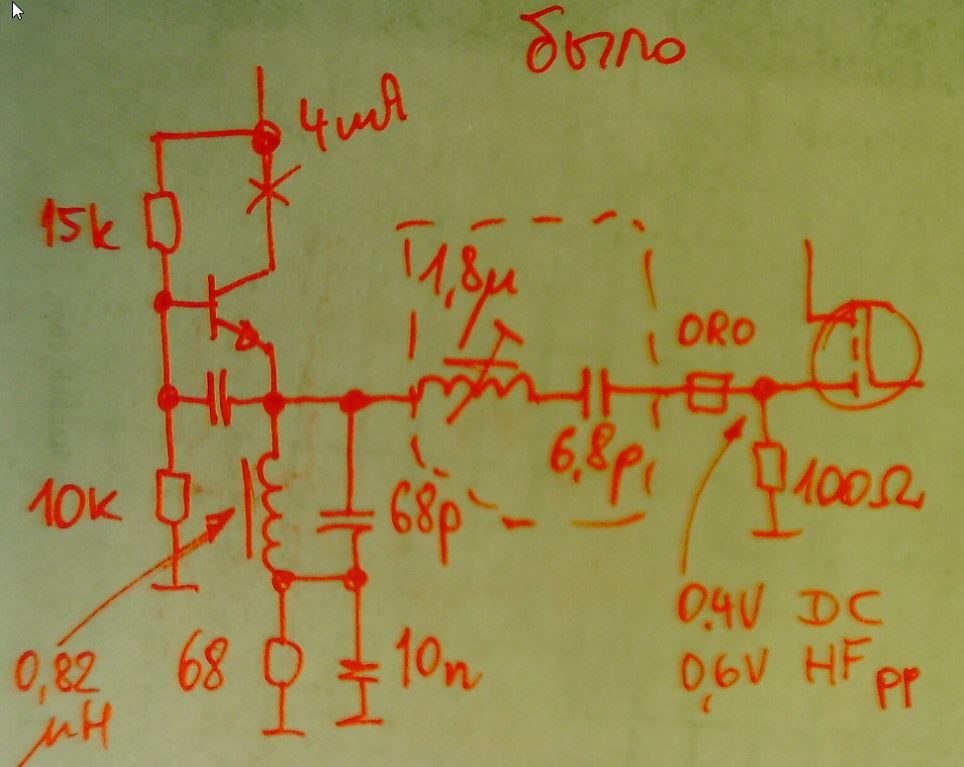 было
4mA
15k
1,8μ
0R0
6,8p
10k
68p
100Ω
0.4V DC
0,6V HFpp
0,82
μH
68
10n